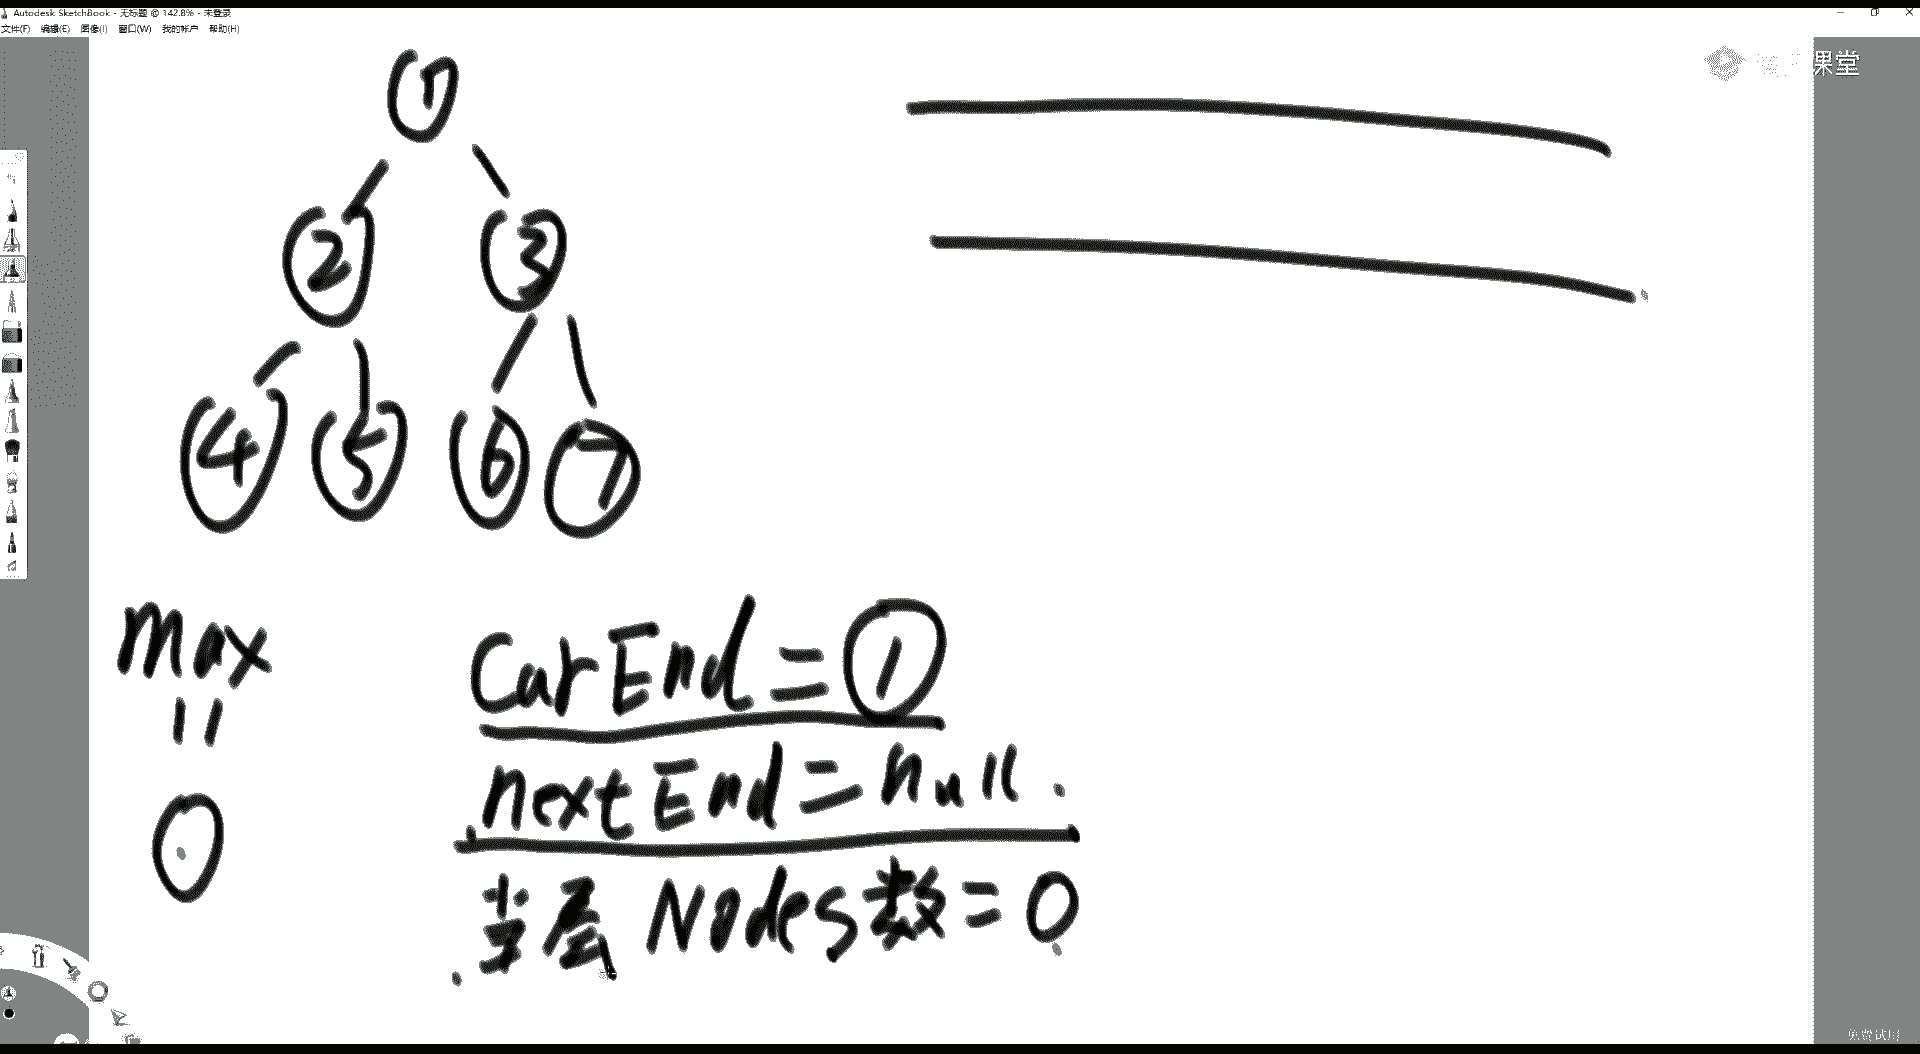 Autodesk SketchBook - 无标题 @ 142.8% - 未登录
文件(F) 编辑(E) 图像(I) 窗口(W) 我的帐户 帮助(H)
课堂
1
2 3
4 5 6 7
max
=
0
CurEnd = 1
nextEnd = null
当层 Nodes数 = 0
免费试用